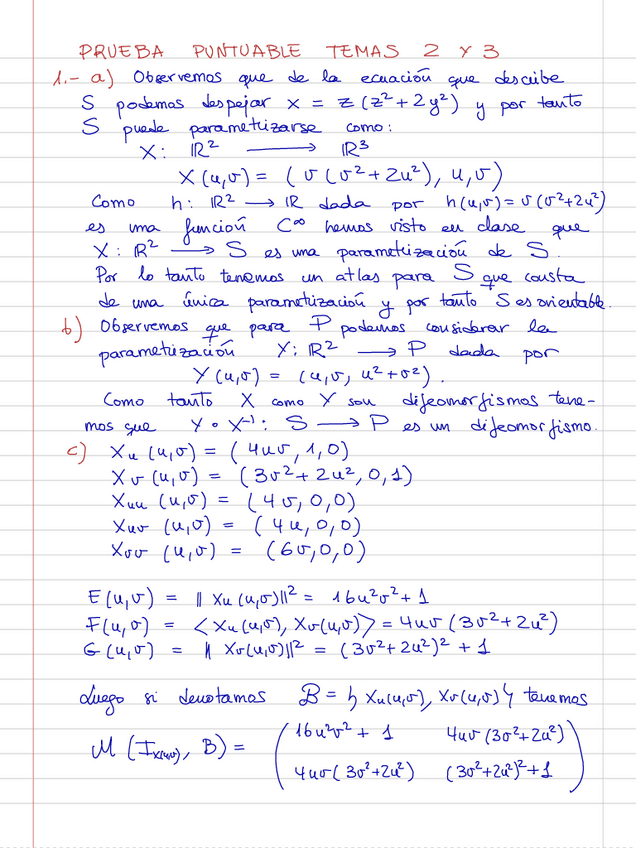 PRUEBA PUNTUABLE TEMAS 2 Y 3
1.- a) Observemos que de la ecuación que describe
S podemos despejar x = z(z²+2y²) y por tanto
S puede parametrizarse como:
X: ℝ² ⟶ ℝ³
X(u,v) = (v(v²+2u²), u, v)
Como h: ℝ² ⟶ ℝ dada por h(u,v) = v(v²+2u²)
es una función C∞ hemos visto en clase que
X: ℝ² ⟶ S es una parametrización de S.
Por lo tanto tenemos un atlas para S que consta
de una única parametrización y por tanto S es orientable.
b) Observemos que para P podemos considerar la
parametrización Y: ℝ² ⟶ P dada por
Y(u,v) = (u, v, u²+v²).
Como tanto X como Y son difeomorfismos tene-
mos que Y∘X⁻¹: S ⟶ P es un difeomorfismo.
c) Xu (u,v) = (4uv, 1, 0)
Xv (u,v) = (3v²+2u², 0, 1)
Xuu (u,v) = (4v, 0, 0)
Xuv (u,v) = (4u, 0, 0)
Xvv (u,v) = (6v, 0, 0)
E(u,v) = ‖Xu(u,v)‖² = 16u²v² + 1
F(u,v) = <Xu(u,v), Xv(u,v)> = 4uv(3v²+2u²)
G(u,v) = ‖Xv(u,v)‖² = (3v²+2u²)² + 1
Luego si denotamos B = {Xu(u,v), Xv(u,v)} tenemos
M (I_X(u,v), B) = ( 16u²v² + 1 4uv(3v²+2u²)
4uv(3v²+2u²) (3v²+2u²)²+1 )